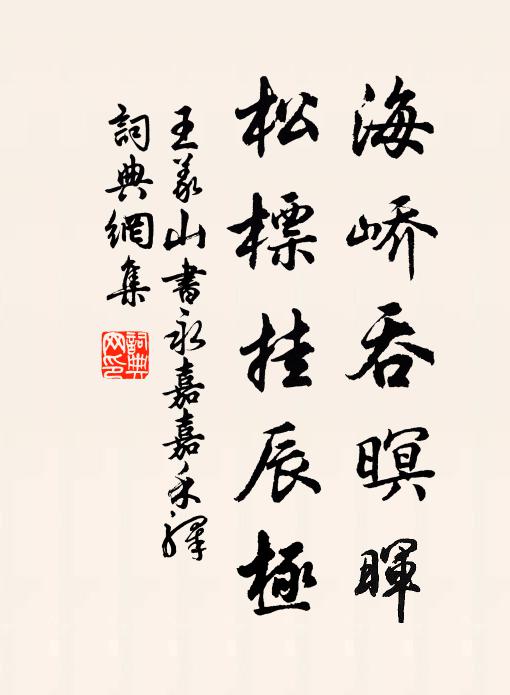 海峤吞暝暉
松標挂辰極
王义山書永嘉嘉禾驛
詞典網集
詞典網印